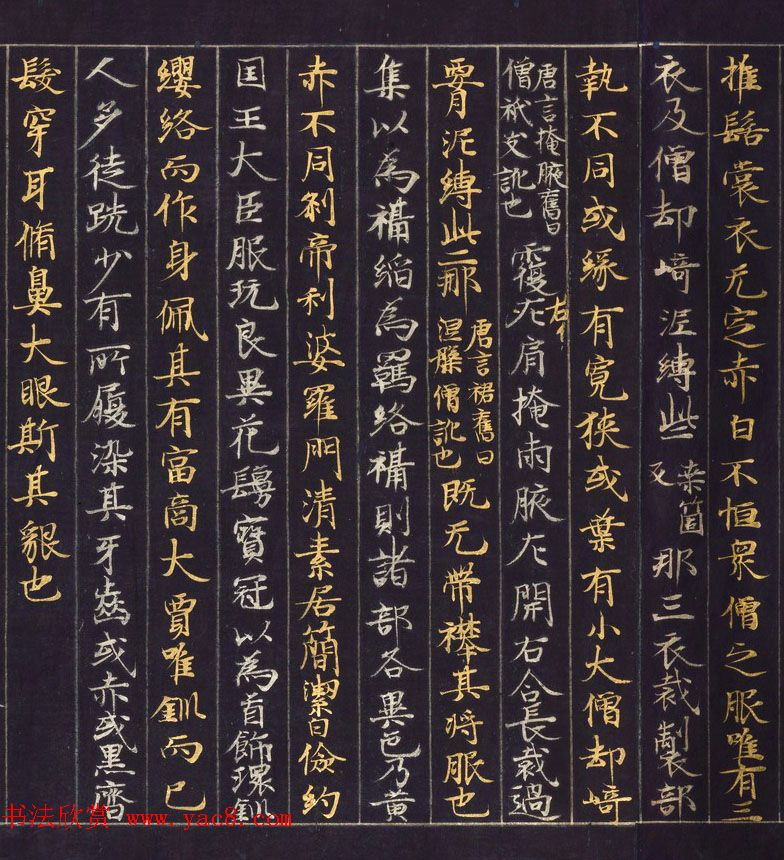 推髻裳衣无定赤白不恒衆僧之服唯有三
衣及僧却﨑泥縛些桒箇反那三衣裁製部
執不同或緣有寬狹或葉有小大僧却﨑
唐言掩腋舊曰僧祇支訛也覆左肩掩両腋左開右合長裁過
泥縛些那唐言裙舊曰涅槃僧訛也既无帶襻其将服也
集以為襵縚為羈絡襵則諸部各異色乃黄
赤不同刹帝利婆羅門清素居簡潔白儉約
国王大臣服玩良異花鬘寳冠以為首飾環釧
纓絡而作身佩其有富商大賈唯釧而已
人多徒跣少有所履染其牙齒或赤或黒齊
髮穿耳脩鼻大眼斯其貌也
书法欣赏 www.yac8.com